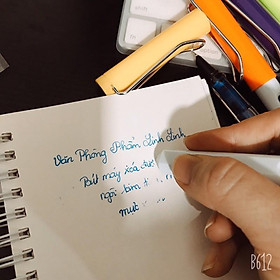 Văn Phòng Phẩm Linh Linh
Bút máy xóa được
ngòi kim
mực
B612